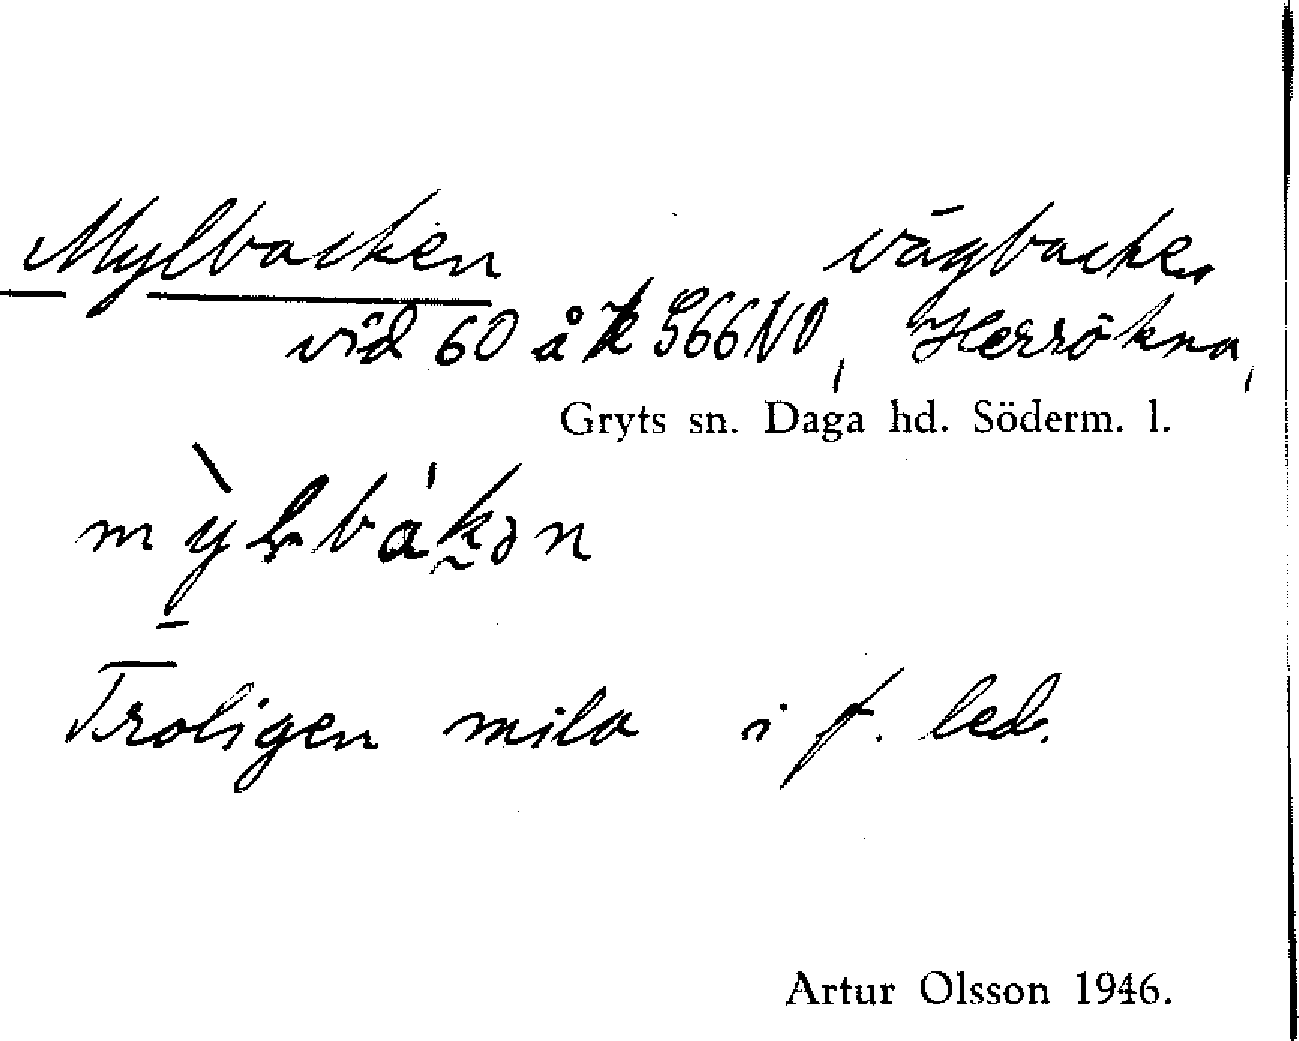 Mylbacken vägbacke,
vid 60 å k 566 NO, Herrökna,
Gryts sn. Daga hd. Söderm. l.
Troligen mila i f. led.
Artur Olsson 1946.